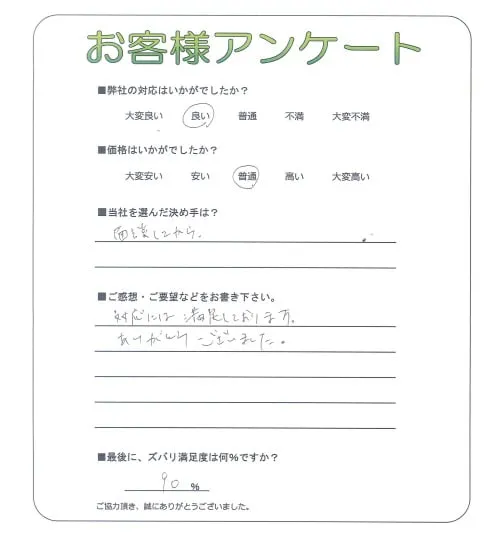 お客様アンケート
■弊社の対応はいかがでしたか？
大変良い 良い 普通 不満 大変不満
■価格はいかがでしたか？
大変安い 安い 普通 高い 大変高い
■当社を選んだ決め手は？
面談してから。
■ご感想・ご要望などをお書き下さい。
対応には満足しております。
ありがとうございました。
■最後に、ズバリ満足度は何％ですか？
90 ％
ご協力頂き、誠にありがとうございました。